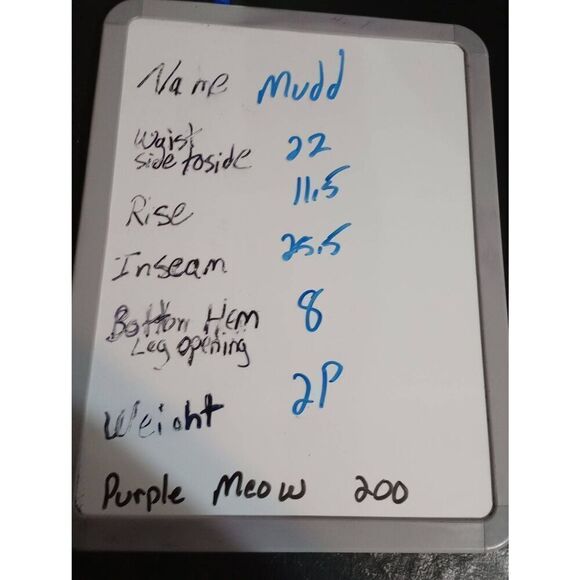 Name Mudd
Waist
side to side 22
Rise 11.5
Inseam 25.5
Bottom Hem 8
Leg opening
Weight 2P
Purple Meow 200